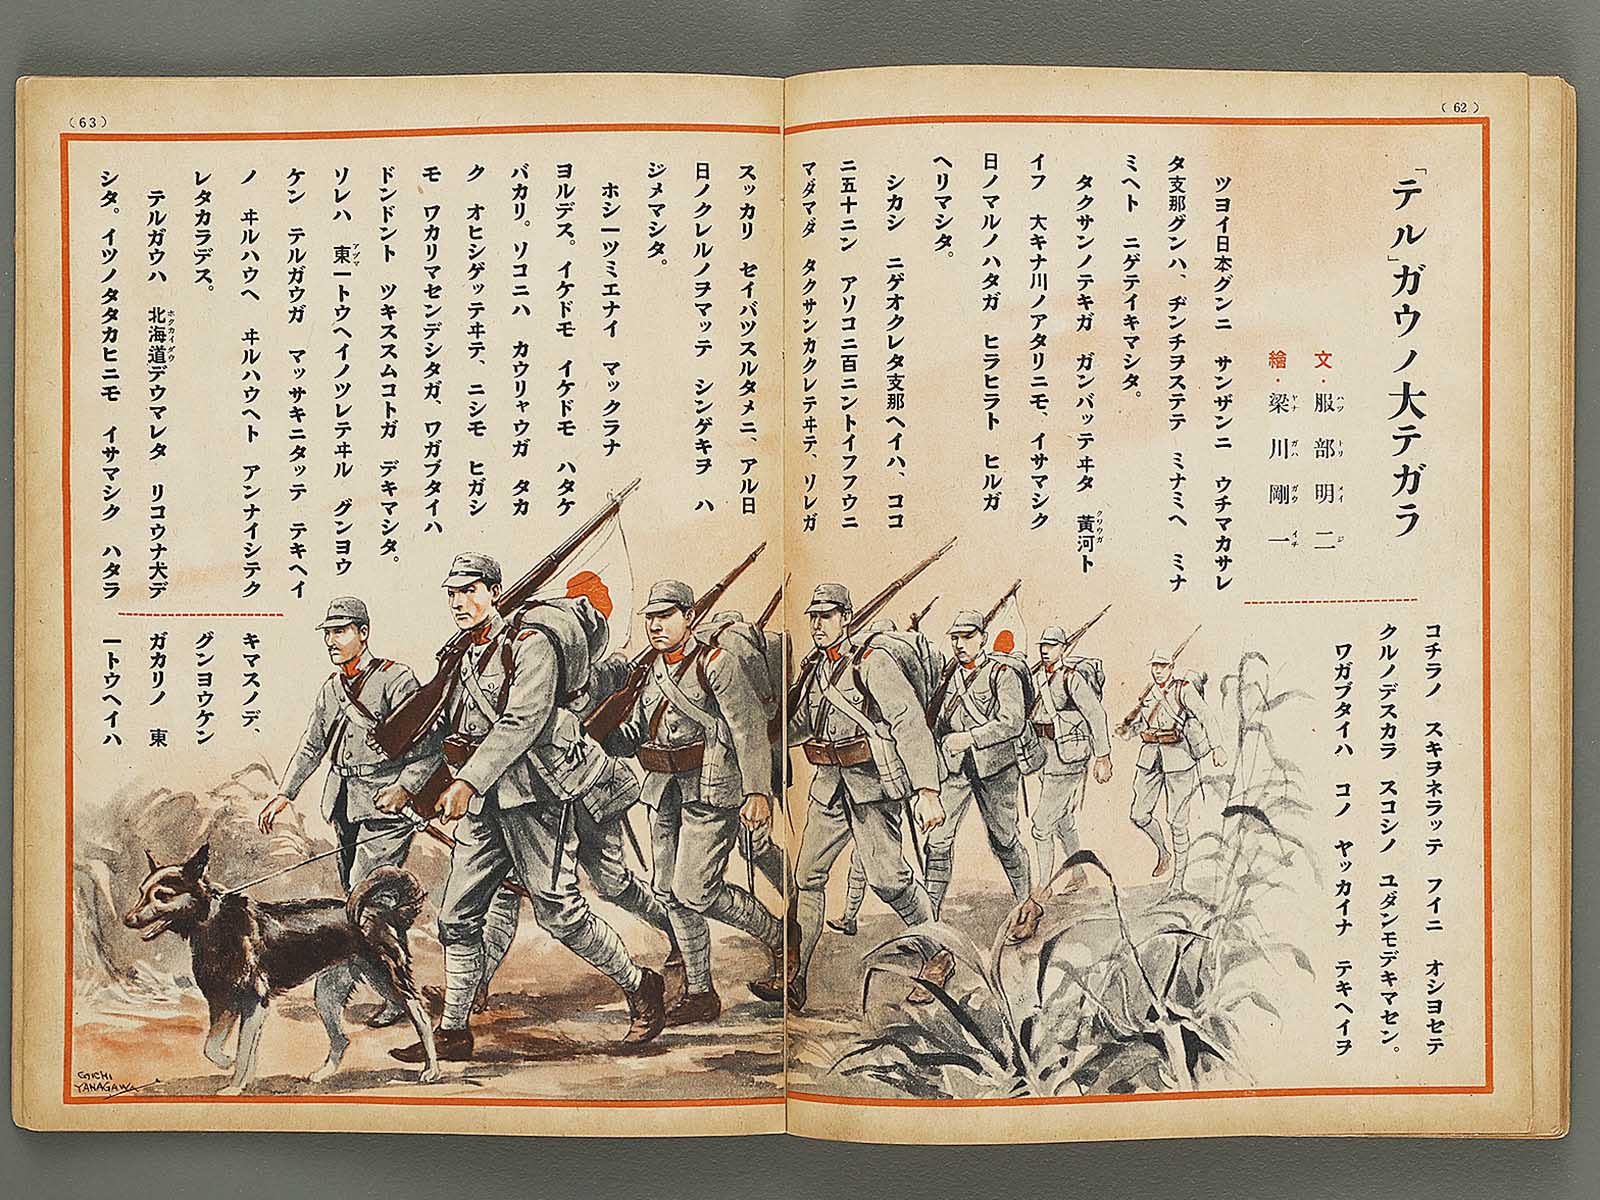 (62)
「テル」ガウノ大テガラ
文・服部明二
ハツトリメイジ
繪・梁川剛一
ヤナガハガウイチ
ツヨイ日本グンニ サンザンニ ウチマカサレ
タ支那グンハ、ヂンチヲステテ ミナミヘ ミナ
ミヘト ニゲテイキマシタ。
タクサンノテキガ ガンバッテヰタ 黃河ト
クワウガ
イフ 大キナ川ノアタリニモ、イサマシク
日ノマルノハタガ ヒラヒラト ヒルガ
ヘリマシタ。
シカシ ニゲオクレタ支那ヘイハ、ココ
ニ五十ニン アソコニ百ニントイフフウニ
マダマダ タクサンカクレテヰテ、ソレガ
コチラノ スキヲネラッテ フイニ オシヨセテ
クルノデスカラ スコシノ ユダンモデキマセン。
ワガブタイハ コノ ヤッカイナ テキヘイヲ
(63)
スッカリ セイバツスルタメニ、アル日
日ノクレルノヲマッテ シンゲキヲ ハ
ジメマシタ。
ホシ一ツミエナイ マックラナ
ヨルデス。イケドモ イケドモ ハタケ
バカリ。ソコニハ カウリャウガ タカ
ク オヒシゲッテヰテ、ニシモ ヒガシ
モ ワカリマセンデシタガ、ワガブタイハ
ドンドント ツキススムコトガ デキマシタ。
ソレハ 東一トウヘイノツレテヰル グンヨウ
アヅマ
ケン テルガウガ マッサキニタッテ テキヘイ
ノ ヰルハウヘ ヰルハウヘト アンナイシテク
レタカラデス。
テルガウハ 北海道デウマレタ リコウナ犬デ
ホクカイダウ
シタ。イツノタタカヒニモ イサマシク ハタラ
キマスノデ、
グンヨウケン
ガカリノ 東
一トウヘイハ
GOICHI
YANAGAWA